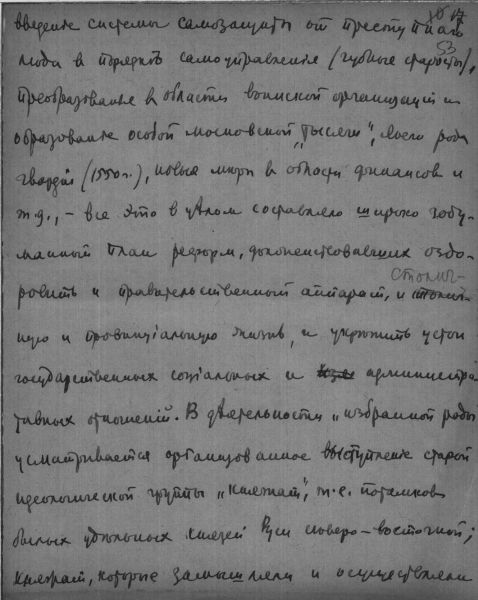 10 17
53
введение системы самозащиты от преступнаго
люда в порядкѣ самоуправленія (губные старосты),
преобразованье в области воинской организаціи и
образованье особой московской „тысячи“, своего рода
гвардіи (1550 г.), новыя меры в области финансов и
т.д., – все это в цѣлом составляло широко задуманный
план реформ, долженствовавших оздо-
столич-
ровить и правительственный аппарат, и
ную и провинціальную жизнь, и укрѣпить устои
государственных соціальных и администра
тивных отношеній. В дѣятельности „избранной рады“
усматривается организованное выступленіе старой
идеологической группы „княжат“, т.е. потомков
былых удѣльных князей Руси сѣверо-восточной;
княжат, которые замышляли и осуществляли